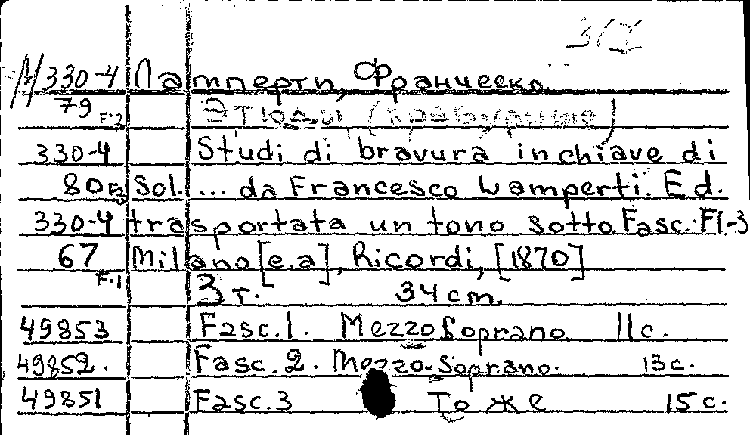 М 330-4 Ламперти, Франческо.
79 F.2 Этюды (бравурные)
330-4 Studi di bravura in chiave di
80 Sol. ... da Francesco Lamperti. Ed.
330-4 trasportata un tono sotto Fasc. F1-3
67 F.1 Milano [e.a], Ricordi, [1870]
3 т. 34 cm.
49853 Fasc.1. Mezzo Soprano 11 с.
49852. Fasc. 2. Mezzo-Soprano. 13 с.
49851 Fasc. 3 То же 15 с.